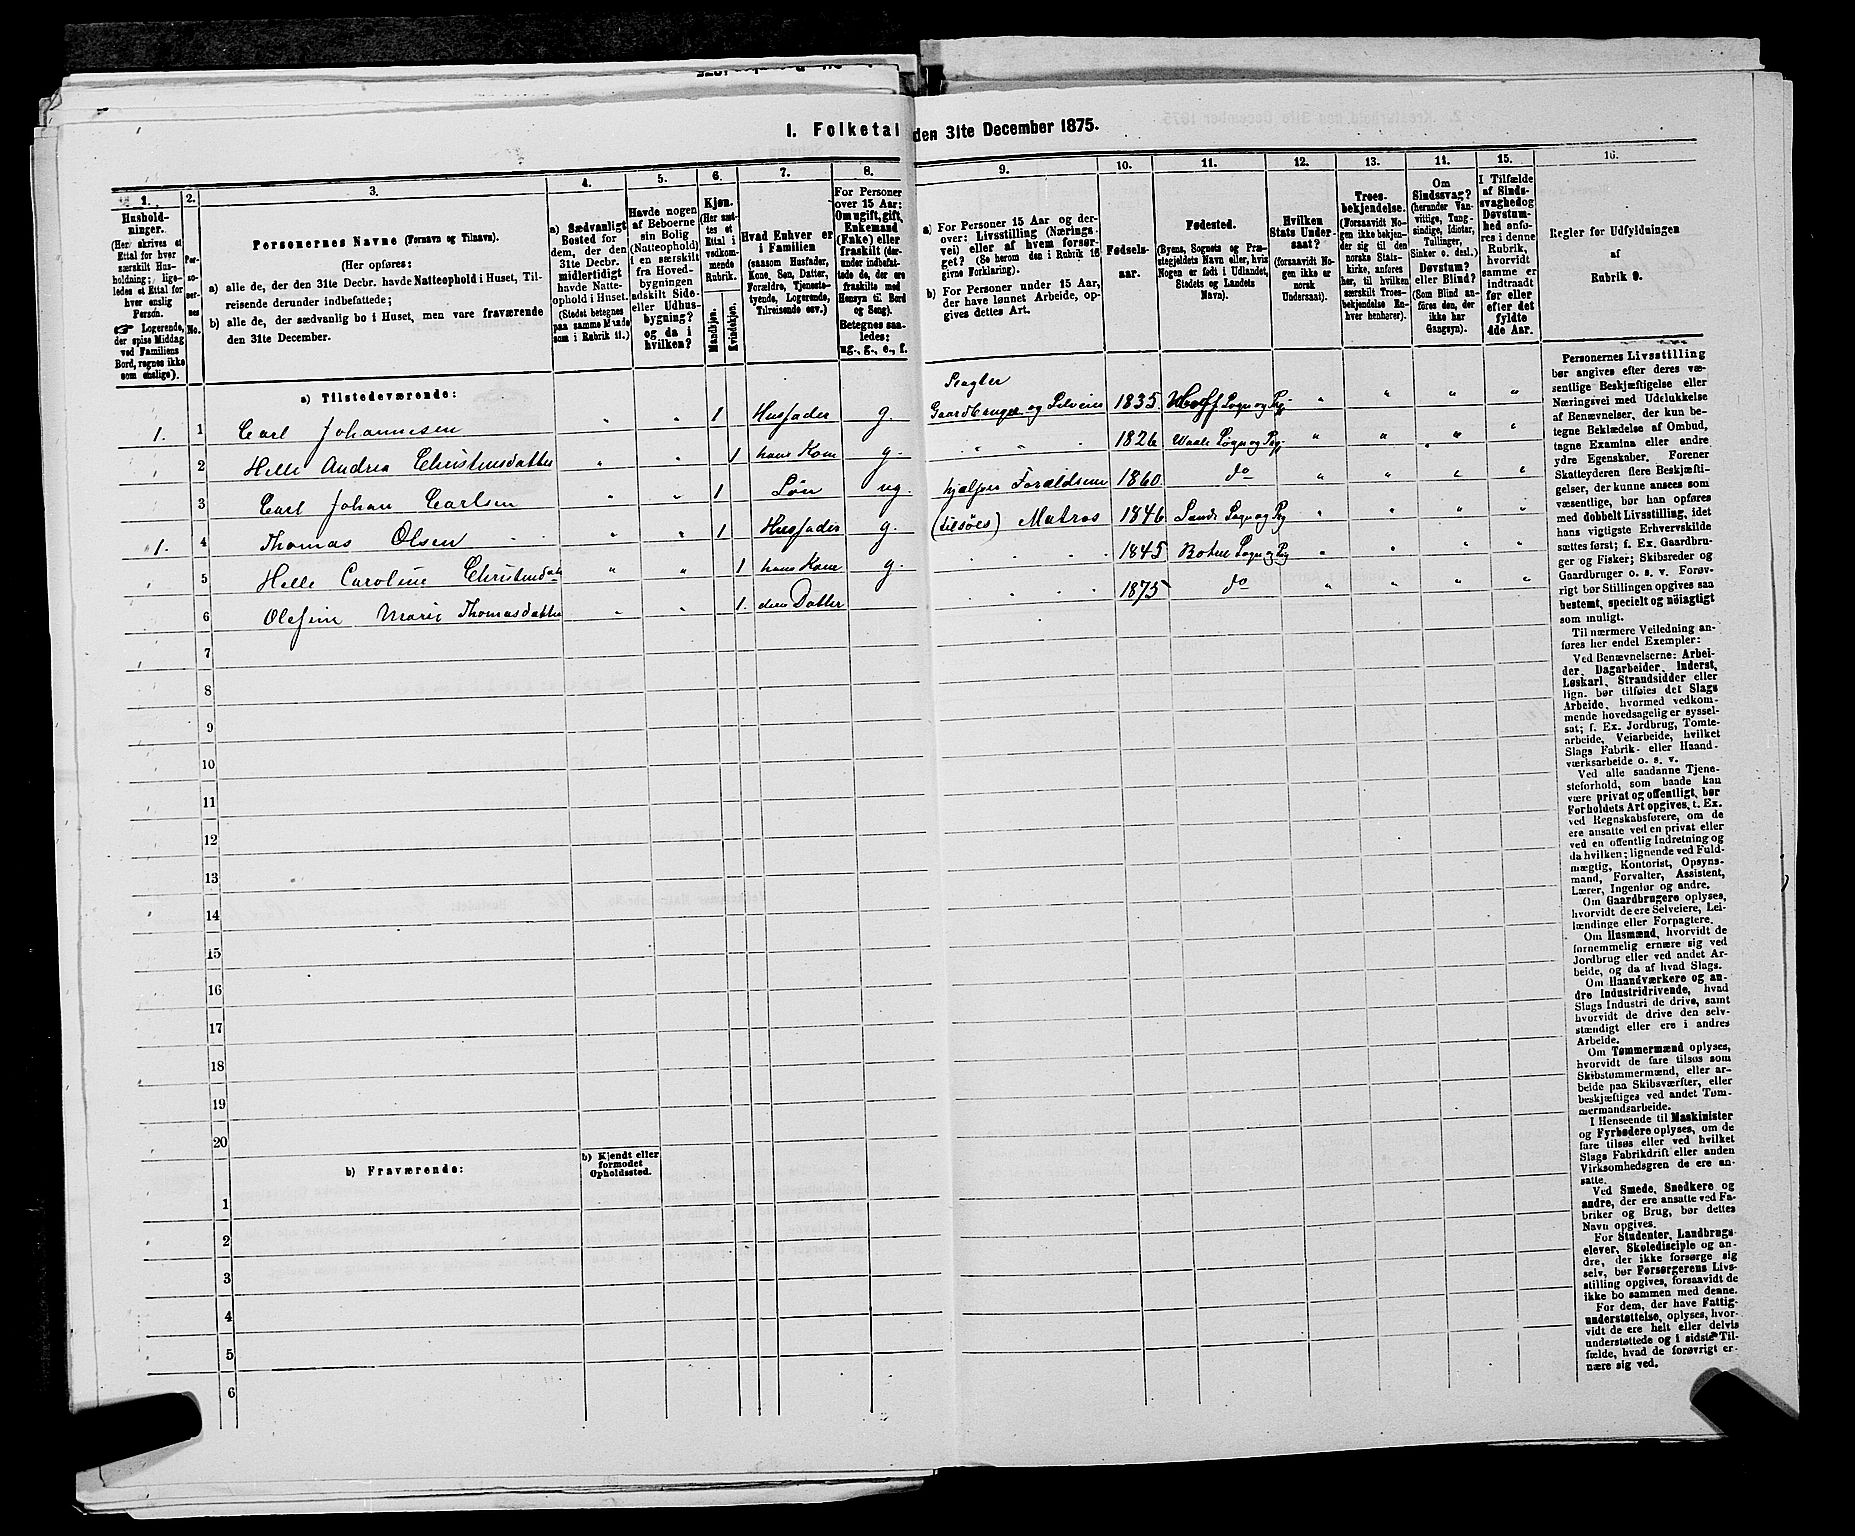 I. Folketal den 31te December 1875.
1.
Hushold-
ninger.
(Her skrives et
Ettal for hver
særskilt Hus-
holdning; lige-
ledes et Ettal for
hver enslig
Person.
☞ Logerende,
der spise Middag
ved Familiens
Bord, regnes ikke
som enslige).
2.
Per-
so-
ner-
nes
No.
3.
Personernes Navne (Fornavn og Tilnavn).
(Her opføres:
a) alle de, der den 31te Decbr. havde Natteophold i Huset, Til-
reisende derunder indbefattede;
b) alle de, der sædvanlig bo i Huset, men vare fraværende
den 31te December.
4.
a) Sædvanligt
Bosted for
dem, der den
31te Decbr.
midlertidigt
havde Natte-
ophold i Huset.
(Stedet betegnes
paa samme Maade
som i Rubrik 11.)
5.
Havde nogen
af Beboerne
sin Bolig
(Natteophold)
i en særskilt
fra Hoved-
bygningen
adskilt Side-
eller Udhus-
bygning?
og da i
hvilken?
6.
Kjøn.
(Her sæt-
tes et
Ettal i
vedkom-
mende
Rubrik.
Mandkjøn.
Kvindekjøn.
7.
Hvad Enhver er
i Familien
(saasom Husfader,
Kone, Søn, Datter,
Forældre, Tjeneste-
tyende, Logerende,
Tilreisende osv.)
8.
For Personer
over 15 Aar:
Om ugift, gift,
Enkemand
(Enke) eller
fraskilt (der-
under indbefat-
tede de, der ere
fraskilte med
Hensyn til Bord
og Seng).
Betegnes saa-
ledes:
ug., g., e., f.
9.
a) For Personer 15 Aar og der-
over: Livsstilling (Nærings-
vei) eller af hvem forsør-
get? (Se herom den i Rubrik 16
givne Forklaring).
b) For Personer under 15 Aar,
der have lønnet Arbeide, op-
gives dettes Art.
10.
Fødsels-
aar.
11.
Fødested.
(Byens, Sognets og Præ-
stegjeldets Navn eller, hvis
Nogen er født i Udlandet,
Stedets og Landets
Navn).
12.
Hvilken
Stats Under-
saat?
(forsaavidt No-
gen ikke er
norsk
Undersaat).
13.
Troes-
bekjendelse.
(Forsaavidt No-
gen ikke bekjen-
der sig til den
norske Stats-
kirke, anføres
her, til hvilken
særskilt Troes-
bekjendelse En-
hver henhører).
14.
Om
Sindssvag?
(herunder Van-
vittige, Tung-
sindige, Idioter,
Tullinger,
Sinker o. desl.)
Døvstum?
eller Blind?
(Som Blind an-
føres den, der
ikke har
Gangsyn).
15.
I Tilfælde
af Sinds-
svaghed og
Døvstum-
hed anfø-
res i denne
Rubrik,
hvorvidt
samme er
indtraadt
før eller
efter det
fyldte
4de Aar.
16.
Regler for Udfyldningen
af
Rubrik 9.
a) Tilstedeværende:
1. 1 Carl Johannesen " " 1 Husfader g. Gaardbruger og Selveier 1835 Hoff Sogn og Pgj. " " " "
2 Helle Andrea Christensdatter " " 1 hans Kone g. " " 1826 Vaale Sogn og Pgj " " " "
3 Carl Johan Carlsen " " 1 Søn ug. hjelper Forældrene 1860 do " " " "
1. 4 Thomas Olsen " " 1 Husfader g. (tilsøes) Matros 1846 Sande Sogn og Pg " " " "
5 Helle Caroline Christensdatt " " 1 hans Kone g. " " " 1845 Botne Sogn og Pg " " " "
6 Olefine Marie Thomasdatter " " 1. deres Datter " " " 1875 do " " " "
7
8
9
10
11
12
13
14
15
16
17
18
19
20
b) Fraværende:
b) Kjendt eller
formodet
Opholdssted.
1
2
3
4
5
6
Personernes Livsstilling
bør angives efter deres væ-
sentlige Beskjæftigelse eller
Næringsvei med Udelukkelse
af Benævnelser, der kun be-
tegne Beklædelse af Ombud,
tagne Examina eller andre
ydre Egenskaber. Forener
Skatteyderen flere Beskjæfti-
gelser, der kunne ansees som
væsentlige, bør han opføres
med dobbelt Livsstilling, idet
hans vigtigste Erhvervskilde
sættes først; f. Ex. Gaardbru-
ger og Fisker; Skibsreder og
Gaardbruger o. s. v. Forøv-
rigt bør Stillingen opgives saa
bestemt, specielt og nøiagtigt
som muligt.
Til nærmere Veiledning an-
føres her endel Exempler:
Ved Benævnelserne: Arbei-
der, Dagarbeider, Inderst,
Løskarl, Strandsidder eller
lign. bør tilføies det Slags
Arbeide, hvormed vedkom-
mende hovedsagelig er syssel-
sat; f. Ex. Jordbrug, Tomte-
arbeide, Veiarbeide, hvilket
Slags Fabrik- eller Haand-
værksarbeide o. s. v.
Ved alle saadanne Tjene-
steforhold, som baade kan
være privat og offentligt, bør
Forholdets Art opgives, t. Ex.
ved Regnskabsførere, om de
ere ansatte ved en privat eller
ved en offentlig Indretning og
da hvilken; lignende ved Fuld-
mægtig, Kontorist, Opsyns-
mand, Forvalter, Assistent,
Lærer, Ingeniør og andre.
Om Gaardbrugere oplyses,
hvorvidt de ere Selveiere, Lei-
lændinge eller Forpagtere.
Om Husmænd, hvorvidt de
fornemmelig ernære sig ved
Jordbrug eller ved andet Ar-
beide, og da af hvad Slags.
Om Haandværkere og an-
dre Industridrivende, hvad
Slags Industri de drive, samt
hvorvidt de drive den selv-
stændigt eller ere i andres
Arbeide.
Om Tømmermænd oplyses,
hvorvidt de fare tilsøs som
Skibstømmermænd, eller ar-
beide paa Skibsværfter, eller
beskjæftiges ved andet Tøm-
mermandsarbeide.
I Henseende til Maskinister
og Fyrbødere oplyses, om de
fare tilsøs eller ved hvilket
Slags Fabrikdrift eller anden
Virksomhedsgren de ere an-
satte.
Ved Smede, Snedkere og
andre, der ere ansatte ved Fa-
briker og Brug, bør dettes
Navn opgives.
For Studenter, Landbrugs-
elever, Skoledisciple og an-
dre, der ikke forsørge sig
selv, bør Forsørgerens Livs-
stilling opgives, forsaavidt de
ikke bo sammen med denne.
For dem, der have Fattig-
understøttelse, oplyses, hvor-
vidt de ere helt eller delvis
understøttede og i sidste Til-
fælde, hvad de forøvrigt er-
nære sig ved.